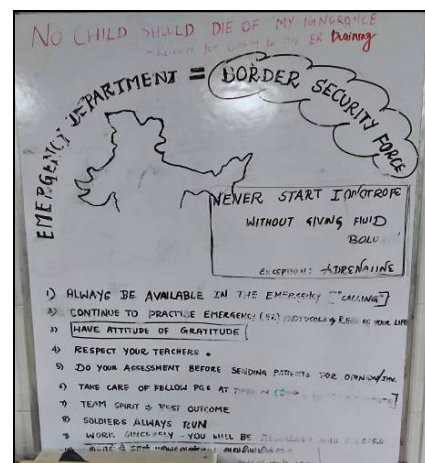 NO CHILD SHOULD DIE OF MY IGNORANCE
for coming to ER training
EMERGENCY DEPARTMENT = BORDER SECURITY FORCE
NEVER START IONOTROPE
WITHOUT GIVING FLUID
BOLU
EXCEPTION: ADRENALINE
1) ALWAYS BE AVAILABLE IN THE EMERGENCY ["CALLING"]
2) CONTINUE TO PRACTISE EMERGENCY (ER) PROTOCOLS REST OF YOUR LIFE
3) HAVE ATTITUDE OF GRATITUDE
4) RESPECT YOUR TEACHERS.
5) DO YOUR ASSESSMENT BEFORE SENDING PATIENTS FOR OPINION/
6) TAKE CARE OF FELLOW PGs AT
7) TEAM SPIRIT BEST OUTCOME
8) SOLDIERS ALWAYS RUN
9) WORK SINCERELY - YOU WILL BE